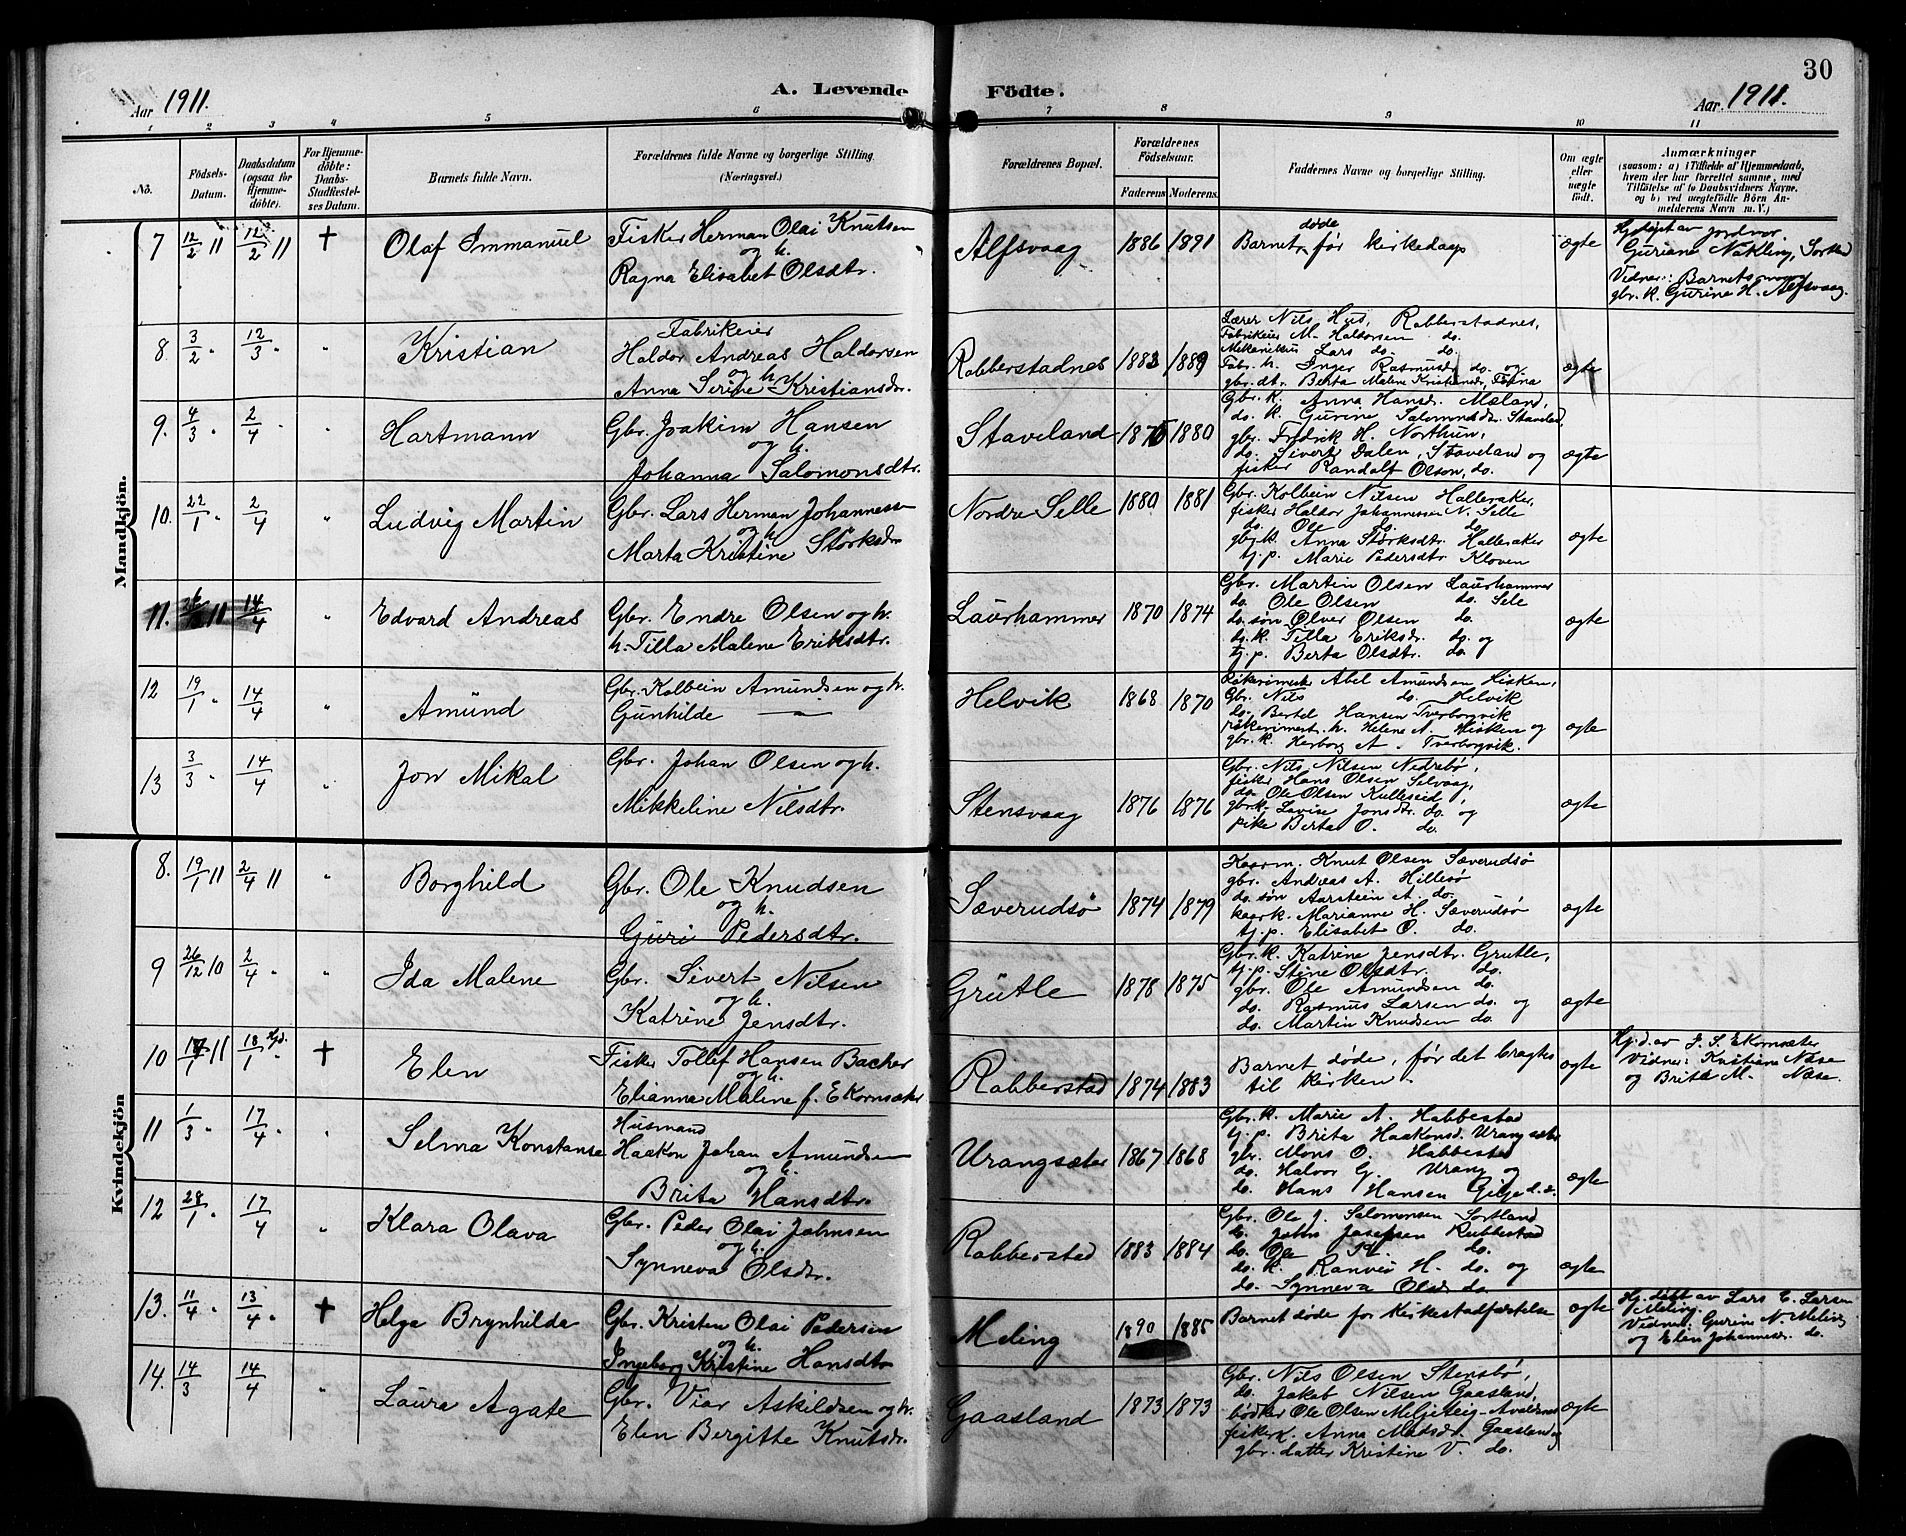 30
Aar 1911.
A. Levende Födte.
Aar 1911.
1 2 3 4 5 6 7 8 9 10 11
No.
Födsels-
Datum.
Daabsdatum
(ogsaa for
Hjemme-
döbte).
For Hjemme-
döbte:
Daabs-
Stadfæstel-
ses Datum.
Barnets fulde Navn.
Forældrenes fulde Navne og borgerlige Stilling.
(Næringsvei.)
Forældrenes Bopæl.
Forældrenes
Födselsaar.
Faderens
Moderens.
Faddernes Navne og borgerlige Stilling.
Om ægte
eller
uægte
födt.
Anmærkninger
(saasom: a) i Tilfælde af Hjemmedaab,
hvem der har forrettet samme, med
Tilföielse af to Daabsvidners Navne,
og b) ved uægtefödte Börn An-
melderens Navn m. V.)
Mandkjön.
7 12/2 11 12/2 11 † Olaf Immanuel
Fisker Herman Olai Knutsen
og h.
Ragna Elisabet Olsdtr.
Alfsvaag 1886 1891
døde
Barnet før kirkedaap
ægte
Hjdøpt av jordmor
Guriane Nakling, Sortland
Vidner: Barnets
gbr. k. Gurine H. Alfsvaag.
8. 3/2 " 12/3 " " Kristian
Fabrikeier
Haldor Andreas Haldorsen
og h.
Anna Serine Kristiansdr.
Robberstadnes 1883 1889
Lærer Nils Hus, Robberstadnes,
Fabrikeier M. Haldorsen do.
Mekanikus Lars do. do.
Fabr. h. Inger Rasmusd. do. og
gbr. dtr. Berta Malene Kristiansdr,
ægte
9. 4/3 " 2/4 " " Hartmann
Gbr. Joakim Hansen
og h.
Johanna Salomonsdtr.
Staveland 1875 1880
Gbr. k. Anna Hansd. Mæland,
do. k. Gurine Salomonsdr. Staveland,
gbr. Fredrik H. Northun,
do. Sivert Dalen, Staveland og
fisker Randalf Olson, do.
ægte
10. 22/1 " 2/4 " Ludvig Martin
Gbr. Lars Herman Johannessen
og h.
Marta Kristine Størksdr
Nordre Selle 1880 1881
Gbr. Kolbein Nilsen Halleraker,
fisker Haldor Johannessen N. Selle
do. Ole do. do.
gbr. k. Anna Størksdtr. Halleraker
tj. p. Marie Pedersdtr. Kloven
ægte
11. 11 14/4 " Edvard Andreas
Gbr. Endre Olsen og h.
h. Tilla Malene Eriksdtr.
Laurhammer 1870 1874
Gbr. Martin Olsen Laurhammer
do. Ole Olsen do. Sele
do. søn Olver Olsen do.
do. k. Tilla Eriksdr. do. og
tj. p. Berta Olsdtr. do.
ægte
12 19/1 " 14/4 " Amund
Gbr. Kolbein Amundsen og h.
Gunhilde —
Helvik 1868 1870
Abel Amundsen Hisken,
Gbr. Nils do. Helvik
do. Bertel Hansen Tverborgvik
h. Helene A. Hisken og
gbr. k. Herborg A. Tverborgvik.
ægte
13 3/3 " 14/4 " Jon Mikal
Gbr. Johan Olsen og h.
Mikkeline Nilsdtr.
Stensvaag 1876 1876
Gbr. Nils Nilsen Nedrebø,
fisker Hans Olsen Selvaag,
do. Ole Olsen Kulleseid,
gbr. k. Lovise Jonsdtr. do. og
pike Berta O. do.
ægte
Kvindekjön
8. 19/1 11 2/4 11 " Borghild
Gbr. Ole Knudsen
og h.
Guri Pedersdtr.
Sæverudsø 1874 1879
Kaarm. Knut Olsen Sæverudsø
gbr. Andreas A. Hillesø
do. søn Aarstein A. do.
kaark. Marianne H. Sæverudsø
tj. p. Elisabet O. do.
ægte
9 26/12 10 2/4 " " Ida Malene
Gbr. Sivert Nilsen
og h.
Katrine Jensdtr.
Grutle 1878 1875
Gbr. k. Katrine Jensdtr. Grutle,
tj. p. Stine Olsdtr. do.
gbr. Ole Amundsen do.
do. Rasmus Larsen do. og
do. Martin Knudsen do.
ægte
10 11 18/1 Hjd. † Elen
Fisker Tollef Hansen Bacher
og h.
Elianna Maline f. Ekornsæter
Robberstad 1874 1883
Barnet døde, før det bragtes
til kirken.
ægte
Hj. d. av J. S. Ekornsæter
Vidner: Kristiane Næse
og Brita M. Næse.
11 1/3 " 17/4 " " Selma Konstanse
Husmand
Haakon Johan Amundsen
og h.
Brita Hansdtr.
Urangsæter 1867 1868
Gbr. k. Marie A. Habbestad
tj. p. Brita Haakonsd. Urangsæter
gbr. Mons O. Habbestad
do. Halvor G. Urang og
do. Hans Hansen Gilje d. e.
ægte
12 28/1 " 17/4 " Klara Olava
Gbr. Peder Olai Johnsen
og h.
Synneva Olsdr.
Robberstad 1883 1884
Gbr. Ole J. Salomonsen Sortland
do. John Josefsen Rubbestad
do. Ole do.
do. k. Ranvei H. do. og
do. Synneva Olsdr do.
ægte
13. 11/4 " 13/4 " † Helga Brynhilda
Gbr. Kristen Olai Pedersen
og h.
Ingeborg Kristine Hansdtr
Meling 1890 1885
Barnet døde før kirkestadfæstelse
ægte
Hj. døbt av Lars E. Larsen
Meling.
Vidner: Gurine N. Meling
og Elen Johannesdr. do.
14. 14/3 14/4 " Laura Agate
Gbr. Viar Askildsen og h.
Elen Bergitte Knutsdr.
Gaasland 1873 1873
Gbr. Nils Olsen Stensbø,
do. Jakob Nilsen Gaasland,
bødker Ole Olsen Meljeteig - Avaldsnes
fisker k. Anna Madsdr. Gaasland og
gbr. datter Kristine V. do.
ægte